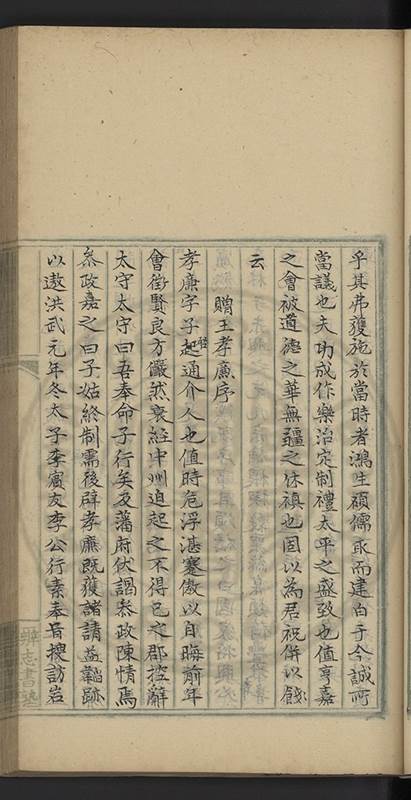 乎其弗獲施於當時者鴻生碩儒取而建白于今誠所
當議也夫功成作樂治定制禮太平之盛致也值亨嘉
之會被道德之華無疆之休禎也固以為君祝併以餞
云
贈王孝廉序
孝廉字子起通介人也值時危浮湛蹇傲以自晦前年
會徵賢良方儼然衰絰中州迫起之不得已之郡控辭
太守太守曰吾奉命子行矣及藩府伏謁叅政陳情焉
叅政嘉之曰子姑終制需後辟孝廉既獲諸請益韜跡
以遨洪武元年冬太子李賓友李公行素奉旨搜訪岩
辨志書塾